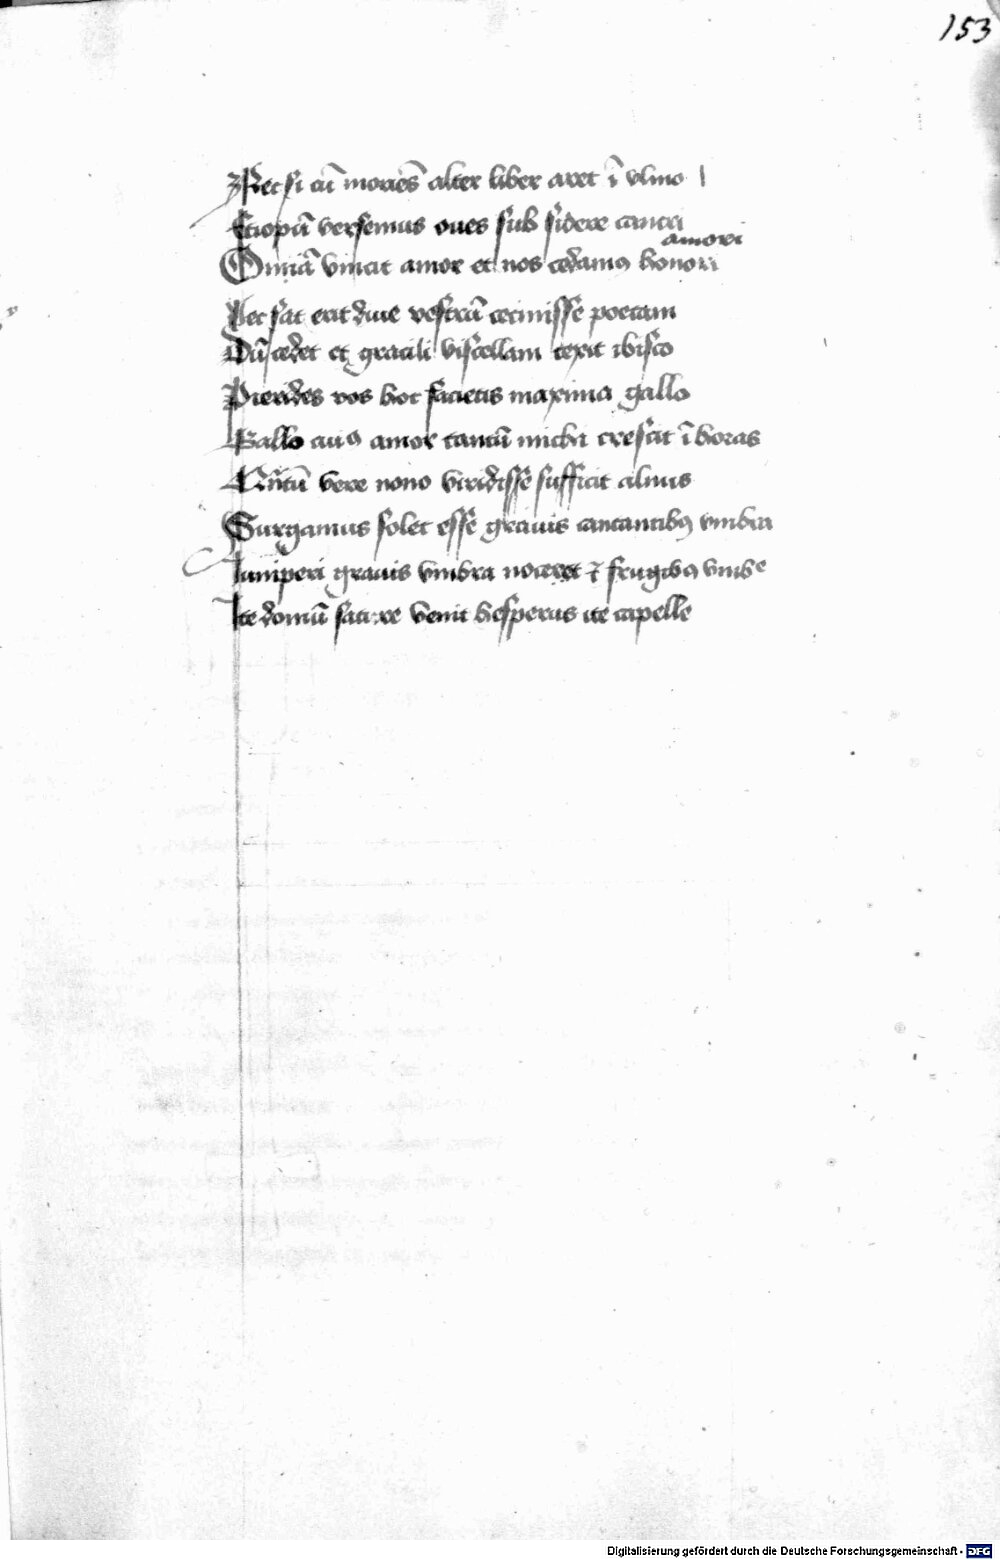 153
Nec si cū moriēs alter liber aret ī vlmo
Etiopū versemus oues sub sidere cancri
amori
Omīa vincit amor et nos cedamꝰ honori
Hec sat erit diue vestrū cecinisse poetam
Dū sedet et gracili viscellam texit ibisco
Pierides vos hoc facietis maxima gallo
Gallo cuiꝰ amor tantū michi crescit ī horas
vere nouo viridisse sufficit alnus
Surgamus solet esse grauis cantantibꝫ vmbra
Iuniperi grauis vmbra nocent ⁊ frugibꝫ vmbe
Ite domū sature venit hesperus ite capelle
Digitalisierung gefördert durch die Deutsche Forschungsgemeinschaft - DFG